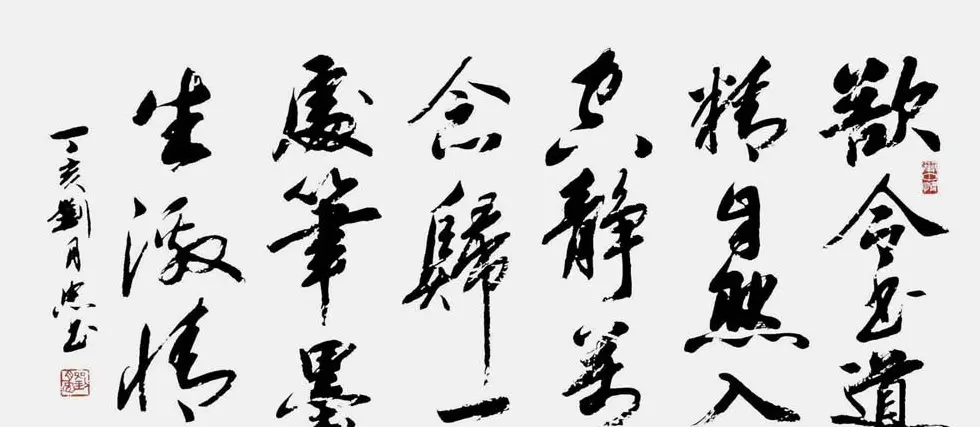 欲令书道
精自然入
空静万
念归一
处笔墨
生激情
丁亥刘月忠书